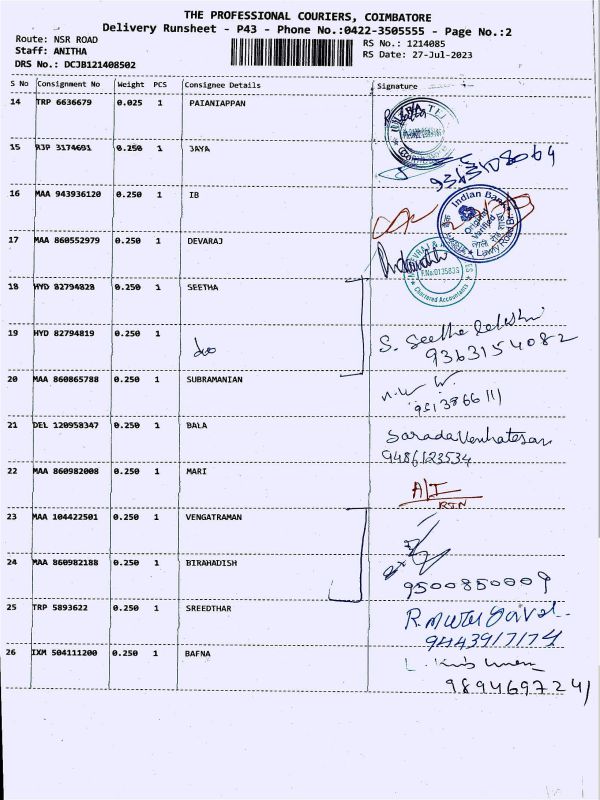 THE PROFESSIONAL COURIERS, COIMBATORE
Delivery Runsheet - P43 - Phone No.:0422-3505555 - Page No.:2
Route: NSR ROAD
Staff: ANITHA
DRS No.: DCJB121408502
RS No.: 1214085
RS Date: 27-Jul-2023
S No Consignment No Weight PCS Consignee Details Signature
14 TRP 6636679 0.025 1 PAIANIAPPAN
15 RJP 3174691 0.250 1 JAYA
16 MAA 943936120 0.250 1 IB
Indian Bank
Original Verified
17 MAA 860552979 0.250 1 DEVARAJ
F.No:013583S
Chartered Accountants
18 HYD 82794828 0.250 1 SEETHA
19 HYD 82794819 0.250 1 duo
S. Seetha
9363154082
20 MAA 860865788 0.250 1 SUBRAMANIAN
21 DEL 120958347 0.250 1 BALA
Sarada Venkatesan
9486123534
22 MAA 860982008 0.250 1 MARI
A/I
RTN
23 MAA 104422501 0.250 1 VENGATRAMAN
24 MAA 860982188 0.250 1 BIRAHADISH
9500850009
25 TRP 5893622 0.250 1 SREEDTHAR
9443917174
26 IXM 504111200 0.250 1 BAFNA
9894697241